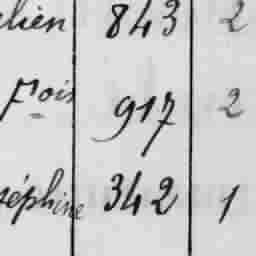 elien 843 2
Fois 917 2
séphine 342 1